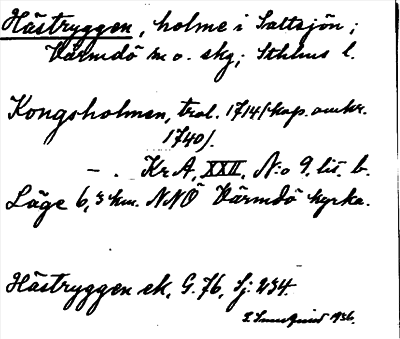 Hästryggen, holme i Saltsjön;
Värmdö sn o. skg; Sthlms l.
Kongsholmen, trol. 1714/kop. omkr.
1740/.
- . Kr A, XXII, N:o 9. lit. b.
Läge 6,3 km. NNÖ Värmdö kyrka.
Hästryggen ek. G. 76, Sj: 234.
1936.